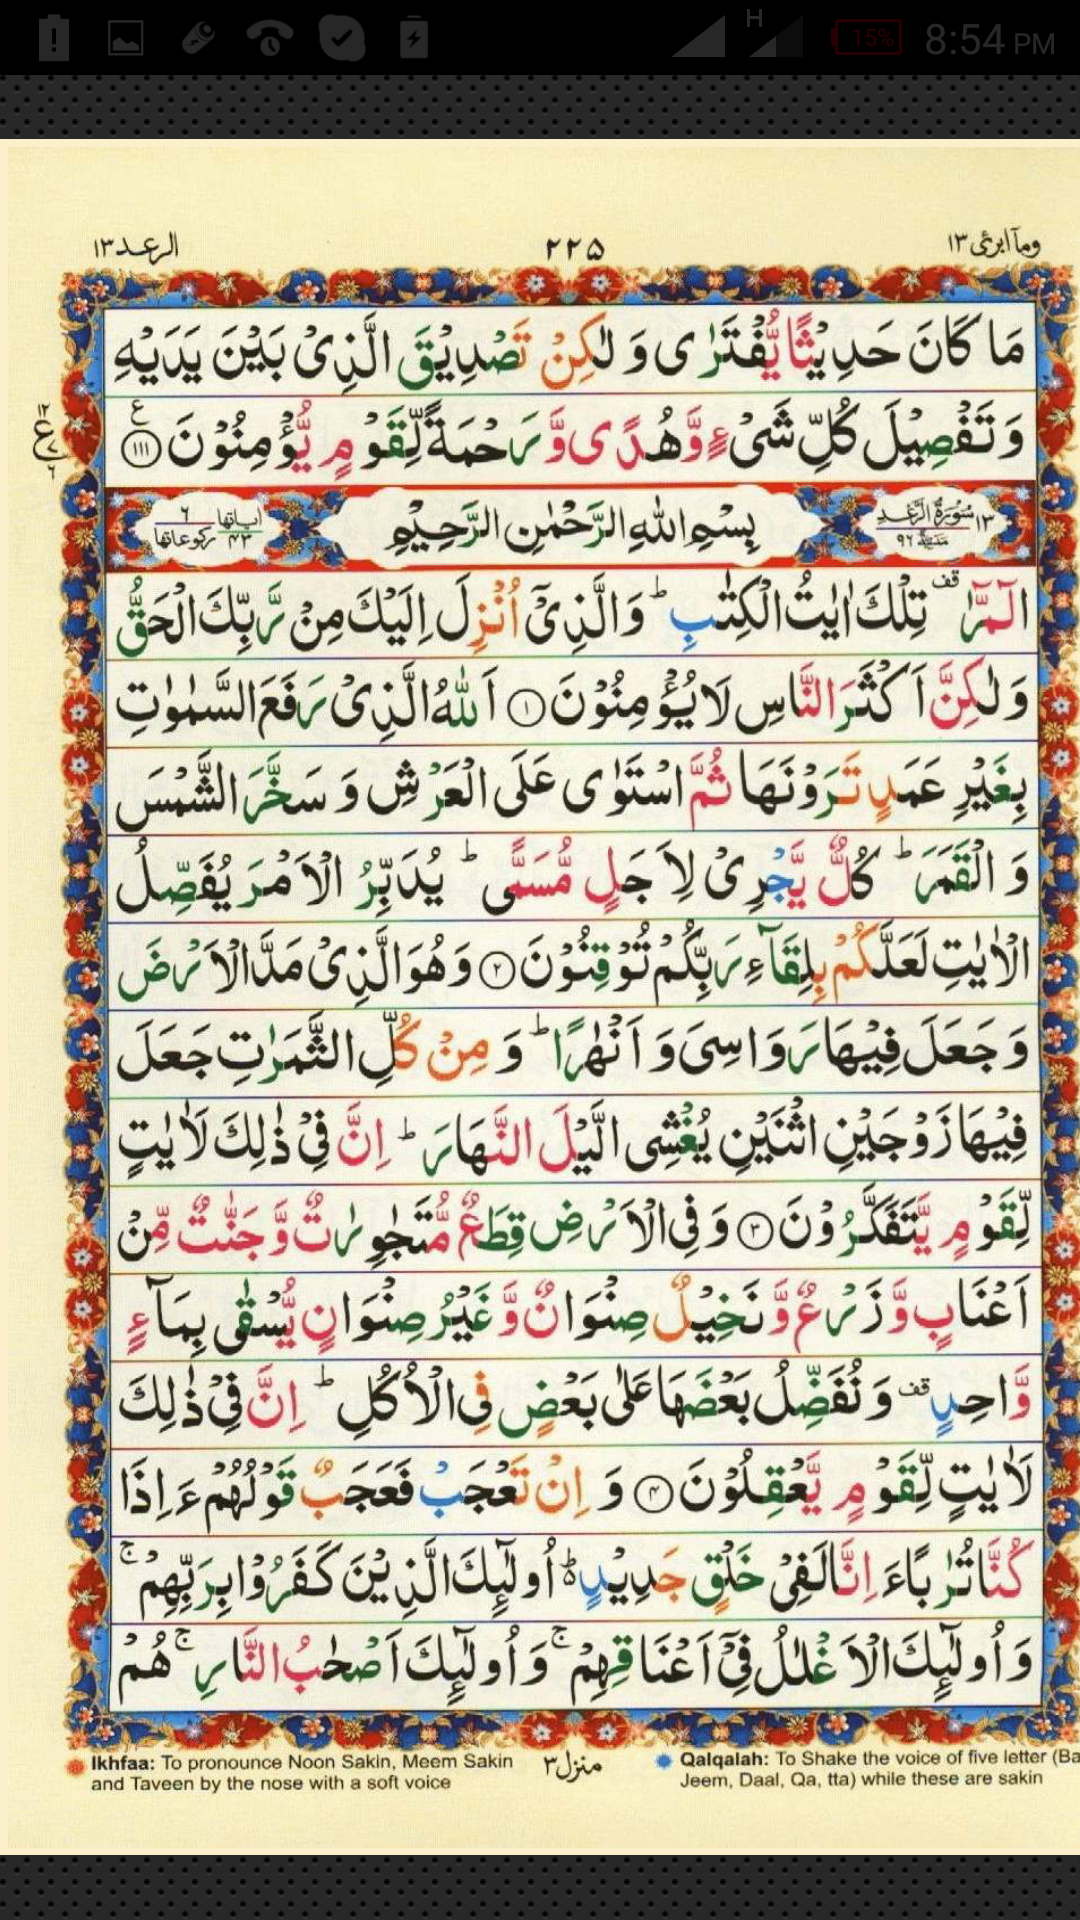 H 15% 8:54 PM
وما ابرئ ١٣ ٢٢٥ الرعد ١٣
مَا كَانَ حَدِيْثًا يُّفْتَرٰى وَ لٰكِنْ تَصْدِيْقَ الَّذِىْ بَيْنَ يَدَيْهِ
وَ تَفْصِيْلَ كُلِّ شَىْءٍ وَّ هُدًى وَّ رَحْمَةً لِّقَوْمٍ يُّؤْمِنُوْنَ ١١١ ع
١٢ ع ٧ ٦
١٣ سُوْرَةُ الرَّعْدِ مَدَنِيَّةٌ ٩٦ بِسْمِ اللهِ الرَّحْمٰنِ الرَّحِيْمِ اٰياتها ٤٣ ركوعاتها ٦
الٓمّٓرٰ قف تِلْكَ اٰيٰتُ الْكِتٰبِ ط وَ الَّذِىْٓ اُنْزِلَ اِلَيْكَ مِنْ رَّبِّكَ الْحَقُّ
وَ لٰكِنَّ اَكْثَرَ النَّاسِ لَا يُؤْمِنُوْنَ ١ اَللّٰهُ الَّذِىْ رَفَعَ السَّمٰوٰتِ
بِغَيْرِ عَمَدٍ تَرَوْنَهَا ثُمَّ اسْتَوٰى عَلَى الْعَرْشِ وَ سَخَّرَ الشَّمْسَ
وَ الْقَمَرَ ط كُلٌّ يَّجْرِىْ لِاَجَلٍ مُّسَمًّى ط يُدَبِّرُ الْاَمْرَ يُفَصِّلُ
الْاٰيٰتِ لَعَلَّكُمْ بِلِقَآءِ رَبِّكُمْ تُوْقِنُوْنَ ٢ وَ هُوَ الَّذِىْ مَدَّ الْاَرْضَ
وَ جَعَلَ فِيْهَا رَوَاسِىَ وَ اَنْهٰرًا ط وَ مِنْ كُلِّ الثَّمَرٰتِ جَعَلَ
فِيْهَا زَوْجَيْنِ اثْنَيْنِ يُغْشِى الَّيْلَ النَّهَارَ ط اِنَّ فِىْ ذٰلِكَ لَاٰيٰتٍ
لِّقَوْمٍ يَّتَفَكَّرُوْنَ ٣ وَ فِى الْاَرْضِ قِطَعٌ مُّتَجٰوِرٰتٌ وَّ جَنّٰتٌ مِّنْ
اَعْنَابٍ وَّ زَرْعٌ وَّ نَخِيْلٌ صِنْوَانٌ وَّ غَيْرُ صِنْوَانٍ يُّسْقٰى بِمَآءٍ
وَّاحِدٍ قف وَ نُفَضِّلُ بَعْضَهَا عَلٰى بَعْضٍ فِى الْاُكُلِ ط اِنَّ فِىْ ذٰلِكَ
لَاٰيٰتٍ لِّقَوْمٍ يَّعْقِلُوْنَ ٤ وَ اِنْ تَعْجَبْ فَعَجَبٌ قَوْلُهُمْ ءَ اِذَا
كُنَّا تُرٰبًا ءَ اِنَّا لَفِىْ خَلْقٍ جَدِيْدٍ ط اُولٰٓئِكَ الَّذِيْنَ كَفَرُوْا بِرَبِّهِمْ ج
وَ اُولٰٓئِكَ الْاَغْلٰلُ فِىْٓ اَعْنَاقِهِمْ ج وَ اُولٰٓئِكَ اَصْحٰبُ النَّارِ ج هُمْ
منزل ٣
Ikhfaa: To pronounce Noon Sakin, Meem Sakin
and Taveen by the nose with a soft voice
Qalqalah: To Shake the voice of five letter (Ba
Jeem, Daal, Qa, tta) while these are sakin